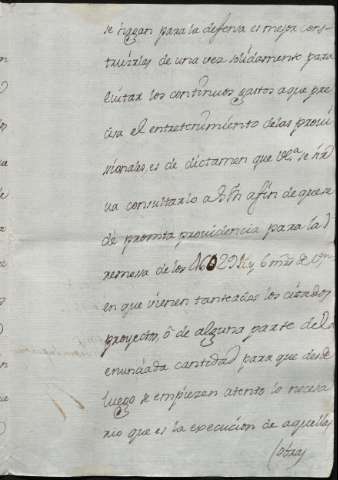 se hagan para la defensa es mejor cons-
truirlas de una vez solidamente para
evitar los continuos gastos a que pre
cisa el entretenimiento de las provi
sionales, es de dictamen que V.E.ª se sir
va consultarlo a S.M. a fin de que se
dé prompta providencia para la
remessa de los
en que vienen tanteados los citados
proyectos, ô de alguna parte de la
enunciada cantidad para que desde
luego se empiezen atento lo necesa
rio que es la execucion de aquellas
obras